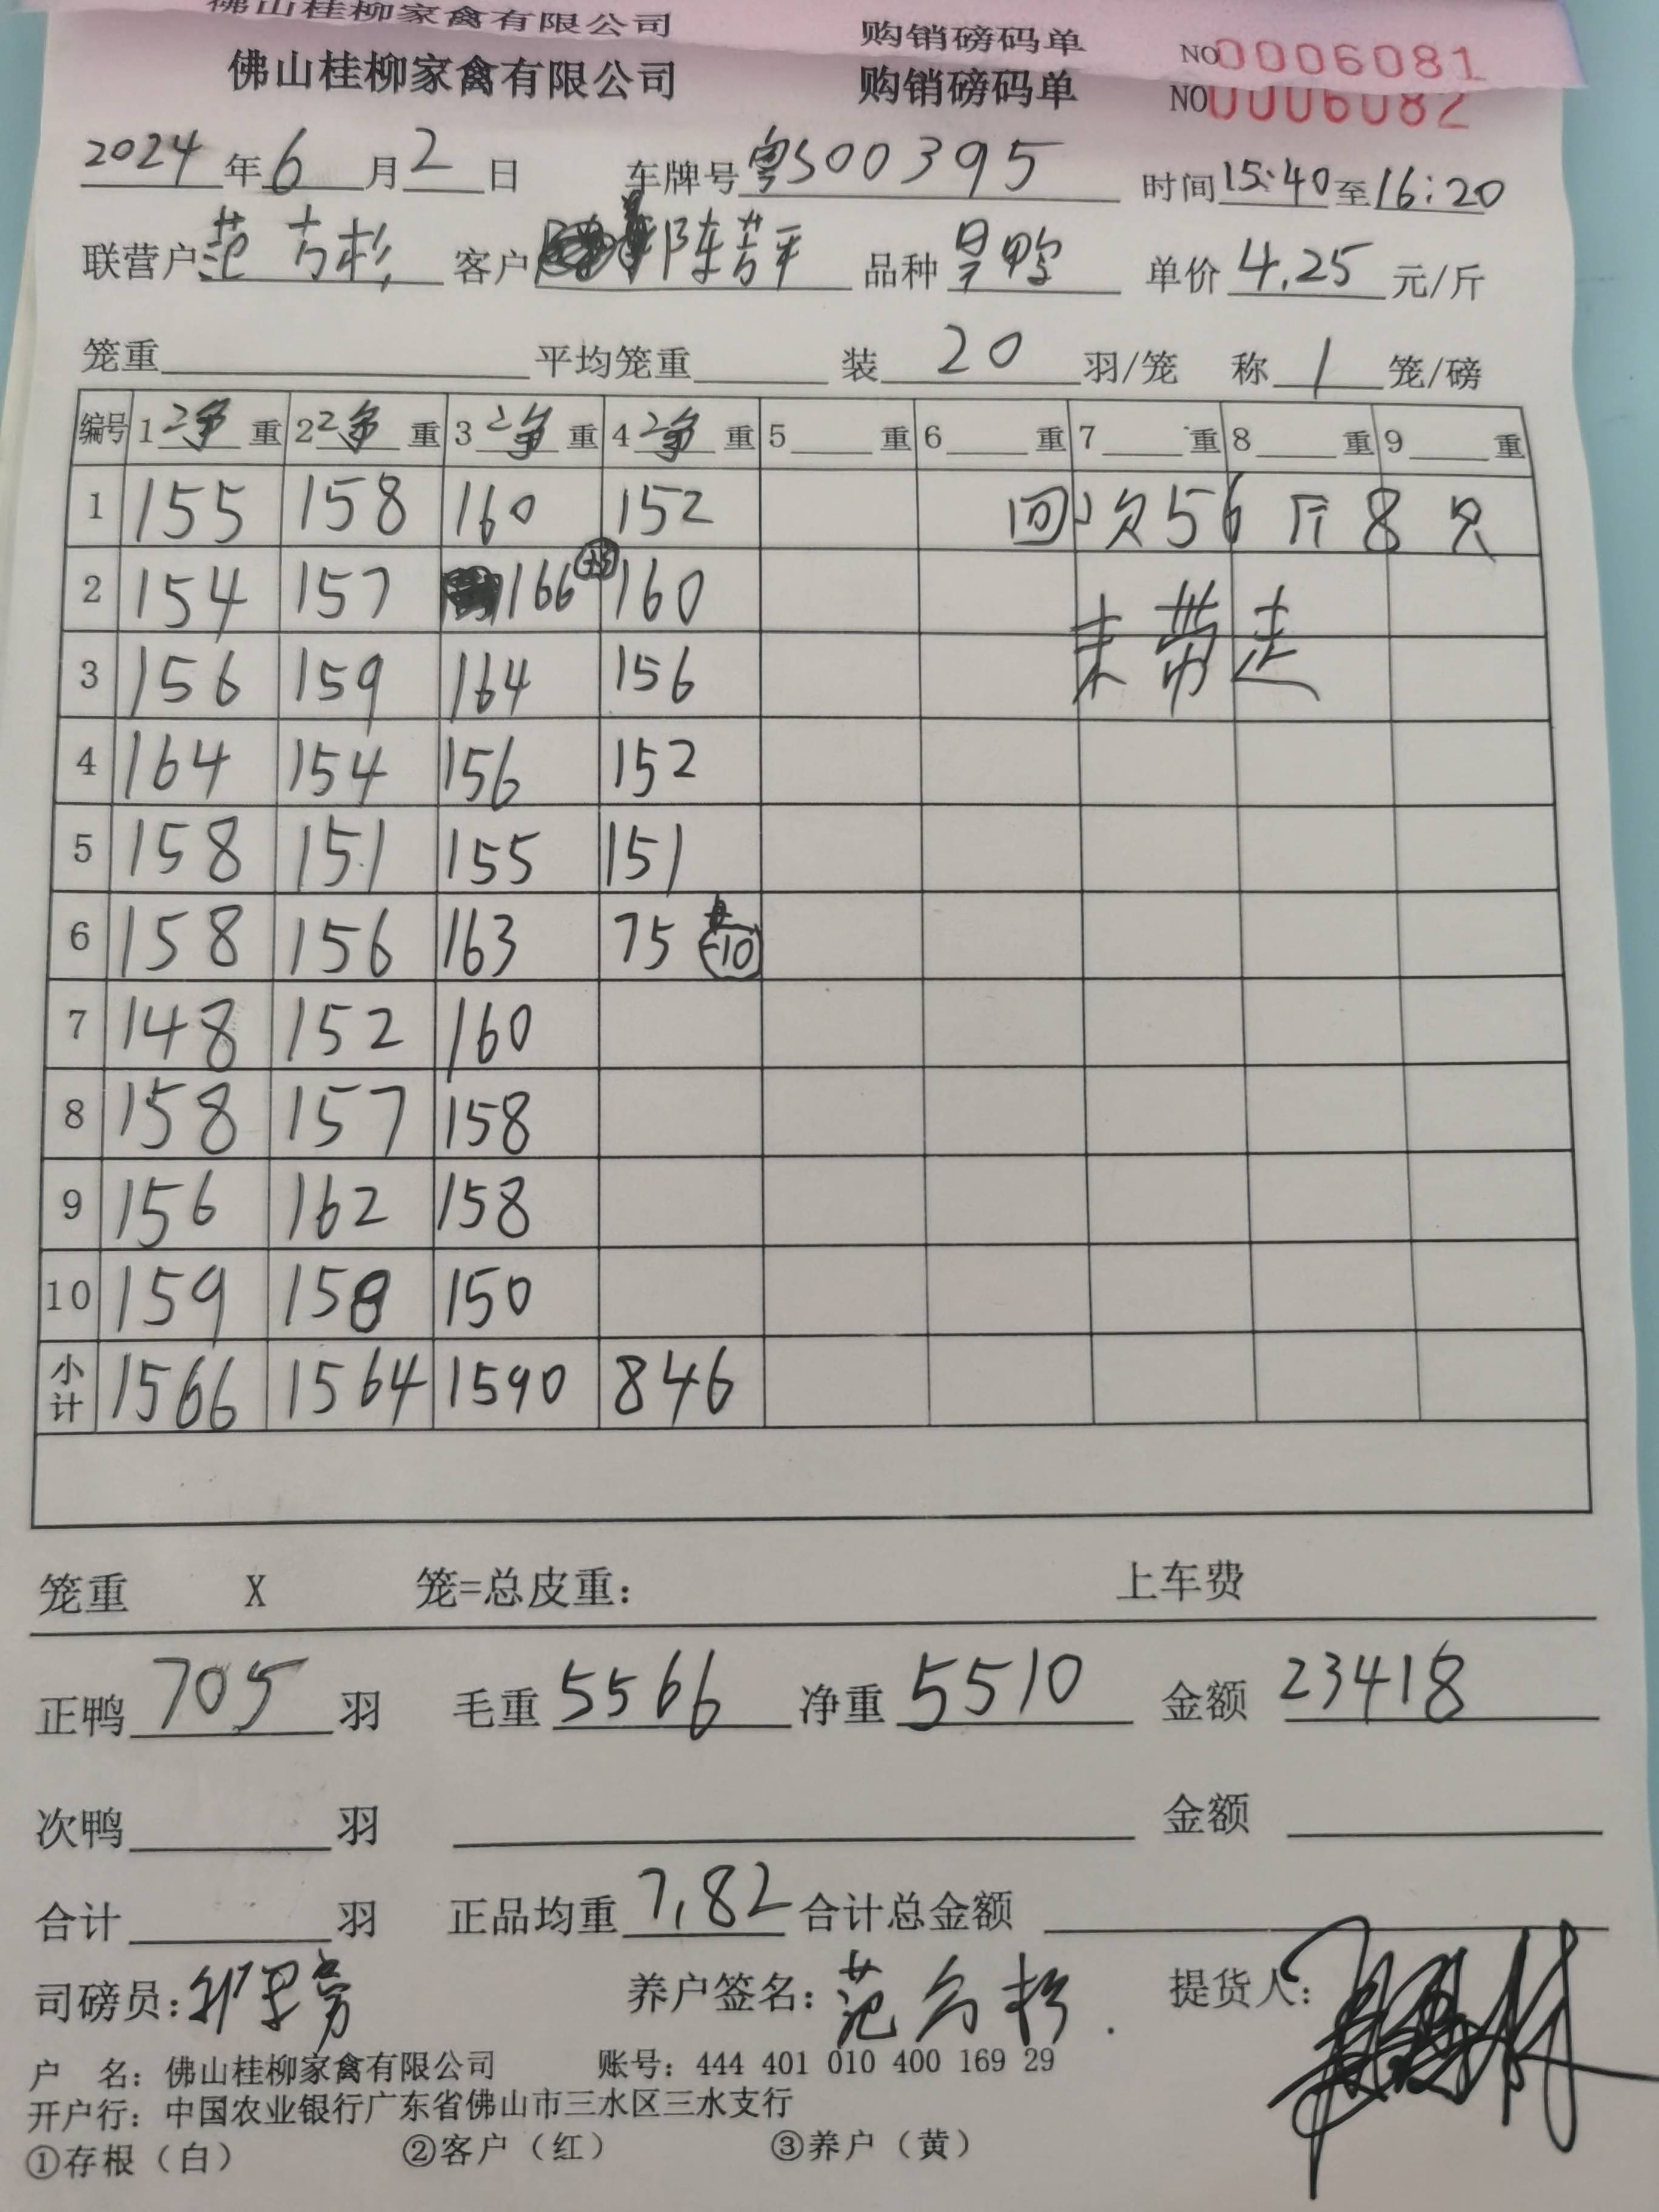 佛山桂柳家禽有限公司 购销磅码单 NO0006081
佛山桂柳家禽有限公司 购销磅码单 NO0006082
2024年6月2日 车牌号粤S00395 时间15:40至16:20
联营户范 杉 客户陈芳平 品种 鸭 单价4.25元/斤
笼重 平均笼重 装20羽/笼 称1笼/磅
编号 1净重 2净重 3净重 4净重 5重 6重 7重 8重 9重
1 155 158 160 152 回次56斤8只
2 154 157 166 160 未带走
3 156 159 164 156
4 164 154 156 152
5 158 151 155 151
6 158 156 163 75 -10
7 148 152 160
8 158 157 158
9 156 162 158
10 159 158 150
小计 1566 1564 1590 846
笼重 X 笼=总皮重: 上车费
正鸭705羽 毛重5566 净重5510 金额23418
次鸭 羽 金额
合计 羽 正品均重7.82 合计总金额
司磅员: 养户签名:范 杉. 提货人:
户 名:佛山桂柳家禽有限公司 账号:444 401 010 400 169 29
开户行:中国农业银行广东省佛山市三水区三水支行
①存根(白) ②客户(红) ③养户(黄)